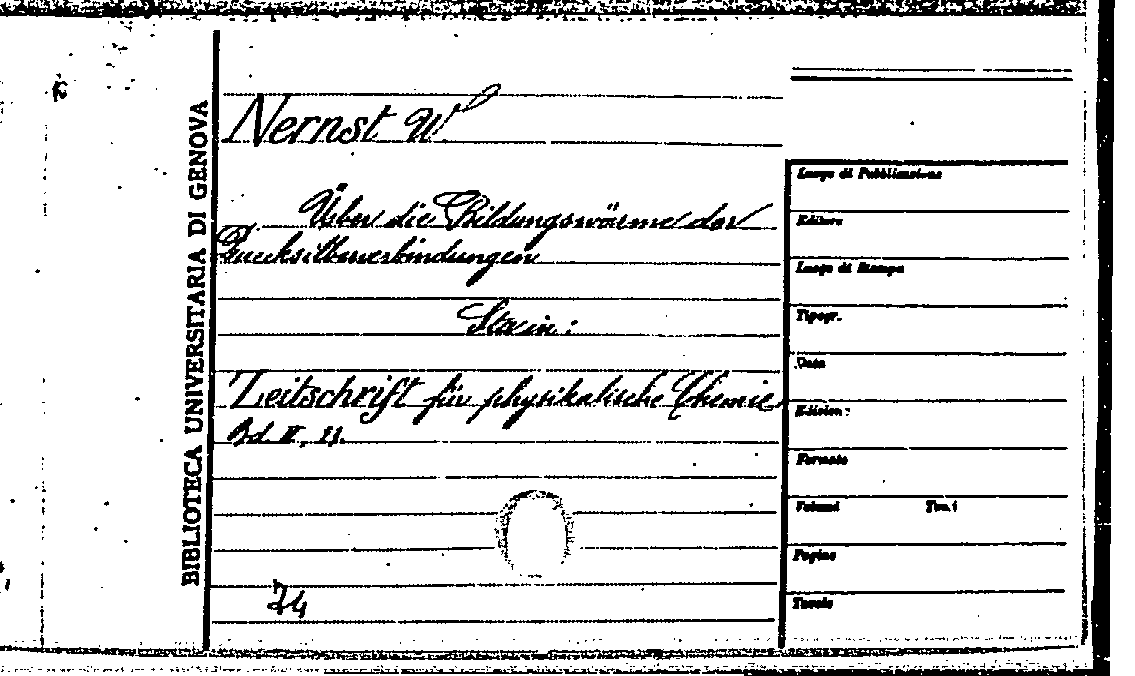 BIBLIOTECA UNIVERSITARIA DI GENOVA
Nernst W
Über die Bildungswärme der
Quecksilberverbindungen
Sta in:
Zeitschrift für physikalische Chemie
Bd. II, 11.
74
Luogo di Pubblicazione
Editore
Luogo di Stampa
Tipogr.
Data
Edizione:
Formato
Volumi Tomi
Pagine
Tavole